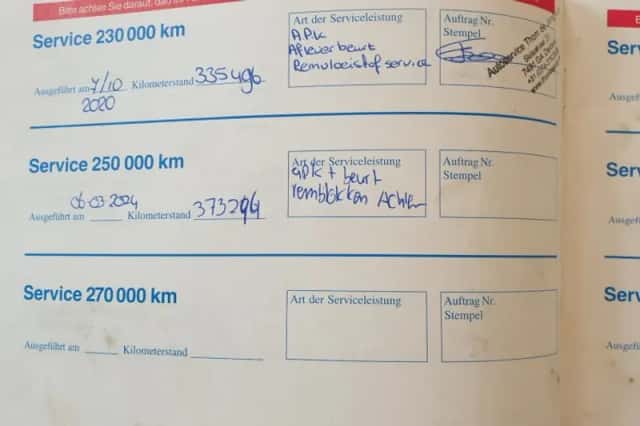 Bitte achten Sie darauf,
Service 230 000 km
Art der Serviceleistung
APK
Afleverbeurt
Remvloeistof service
Auftrag Nr.
Stempel
Autoservice Thom
Ausgeführt am 7/10 2020 Kilometerstand 335496
Service 250 000 km
Art der Serviceleistung
APK + beurt
remblokken Achter
Auftrag Nr.
Stempel
Ausgeführt am 06-03-2024 Kilometerstand 373294
Service 270 000 km
Art der Serviceleistung
Auftrag Nr.
Stempel
Ausgeführt am Kilometerstand
Ausgeführt
Ausgeführt
Ausgeführt